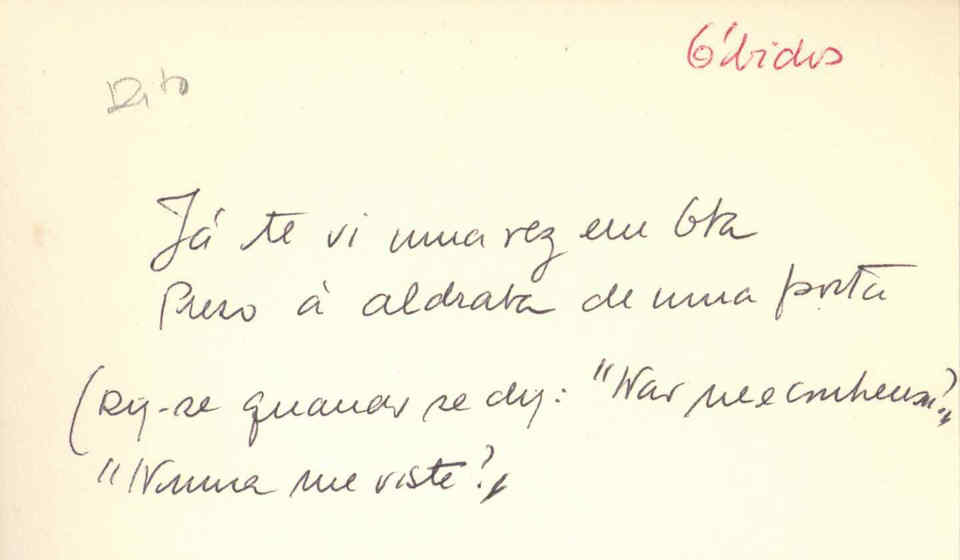 Óbidos
Dito
Já te vi uma vez em
Preso à aldraba de uma porta
(Diz-se quando se diz: "Não me conheces?"
"Nunca me viste?"